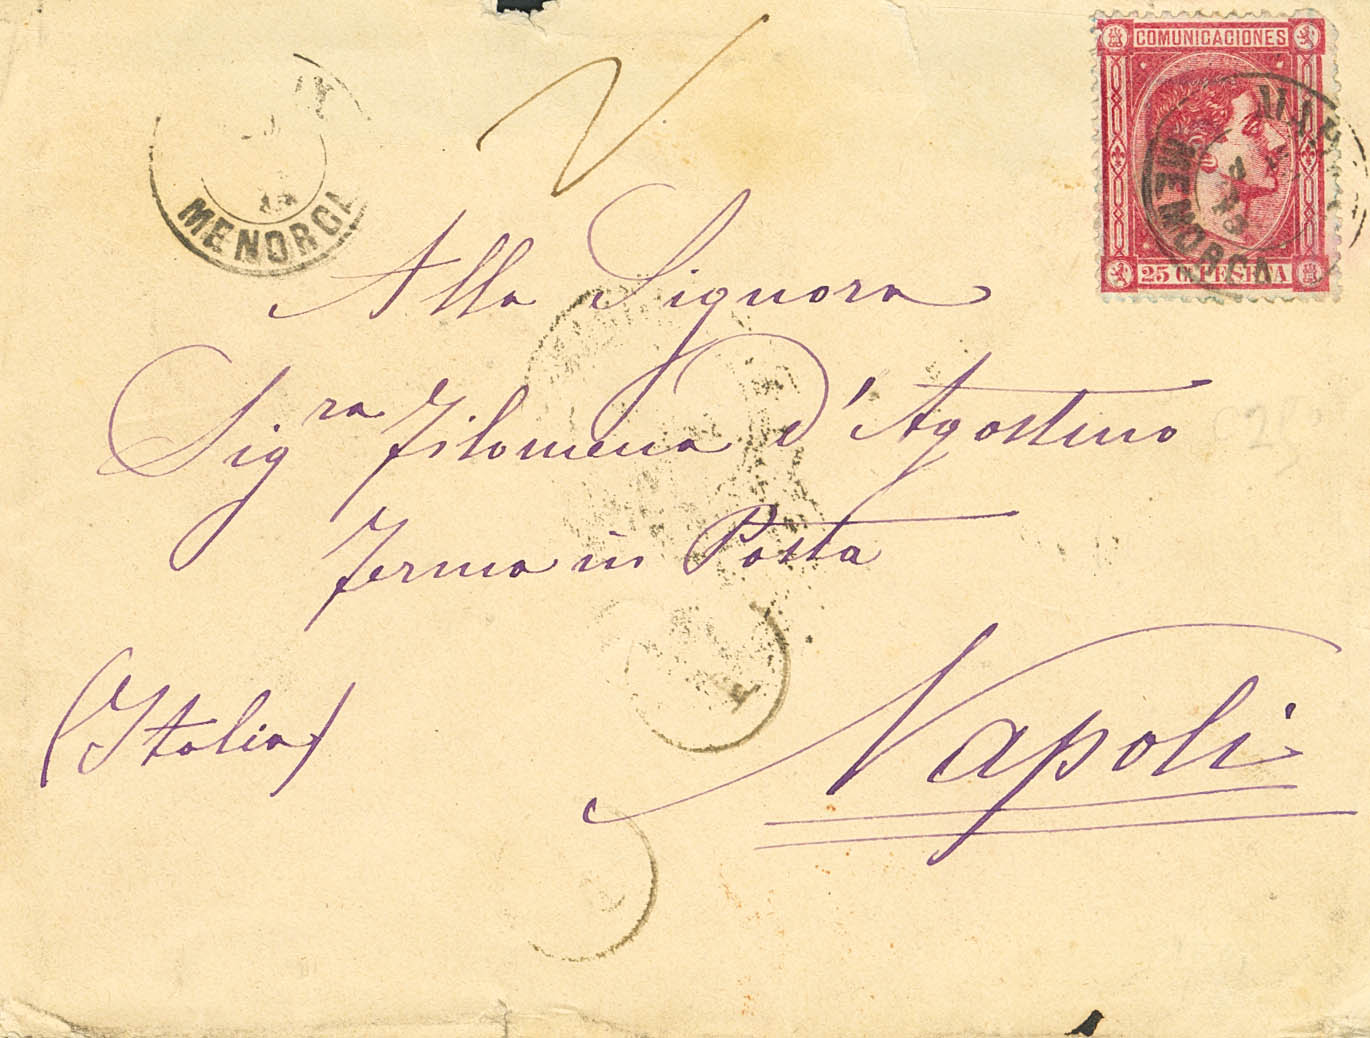 COMUNICACIONES
MAH
MENORCA
25 Cs PESETA
MENORCA
Alla Signora
Sig.ra Filomena d'Agostino
Ferma in Posta
Napoli
(Italia)